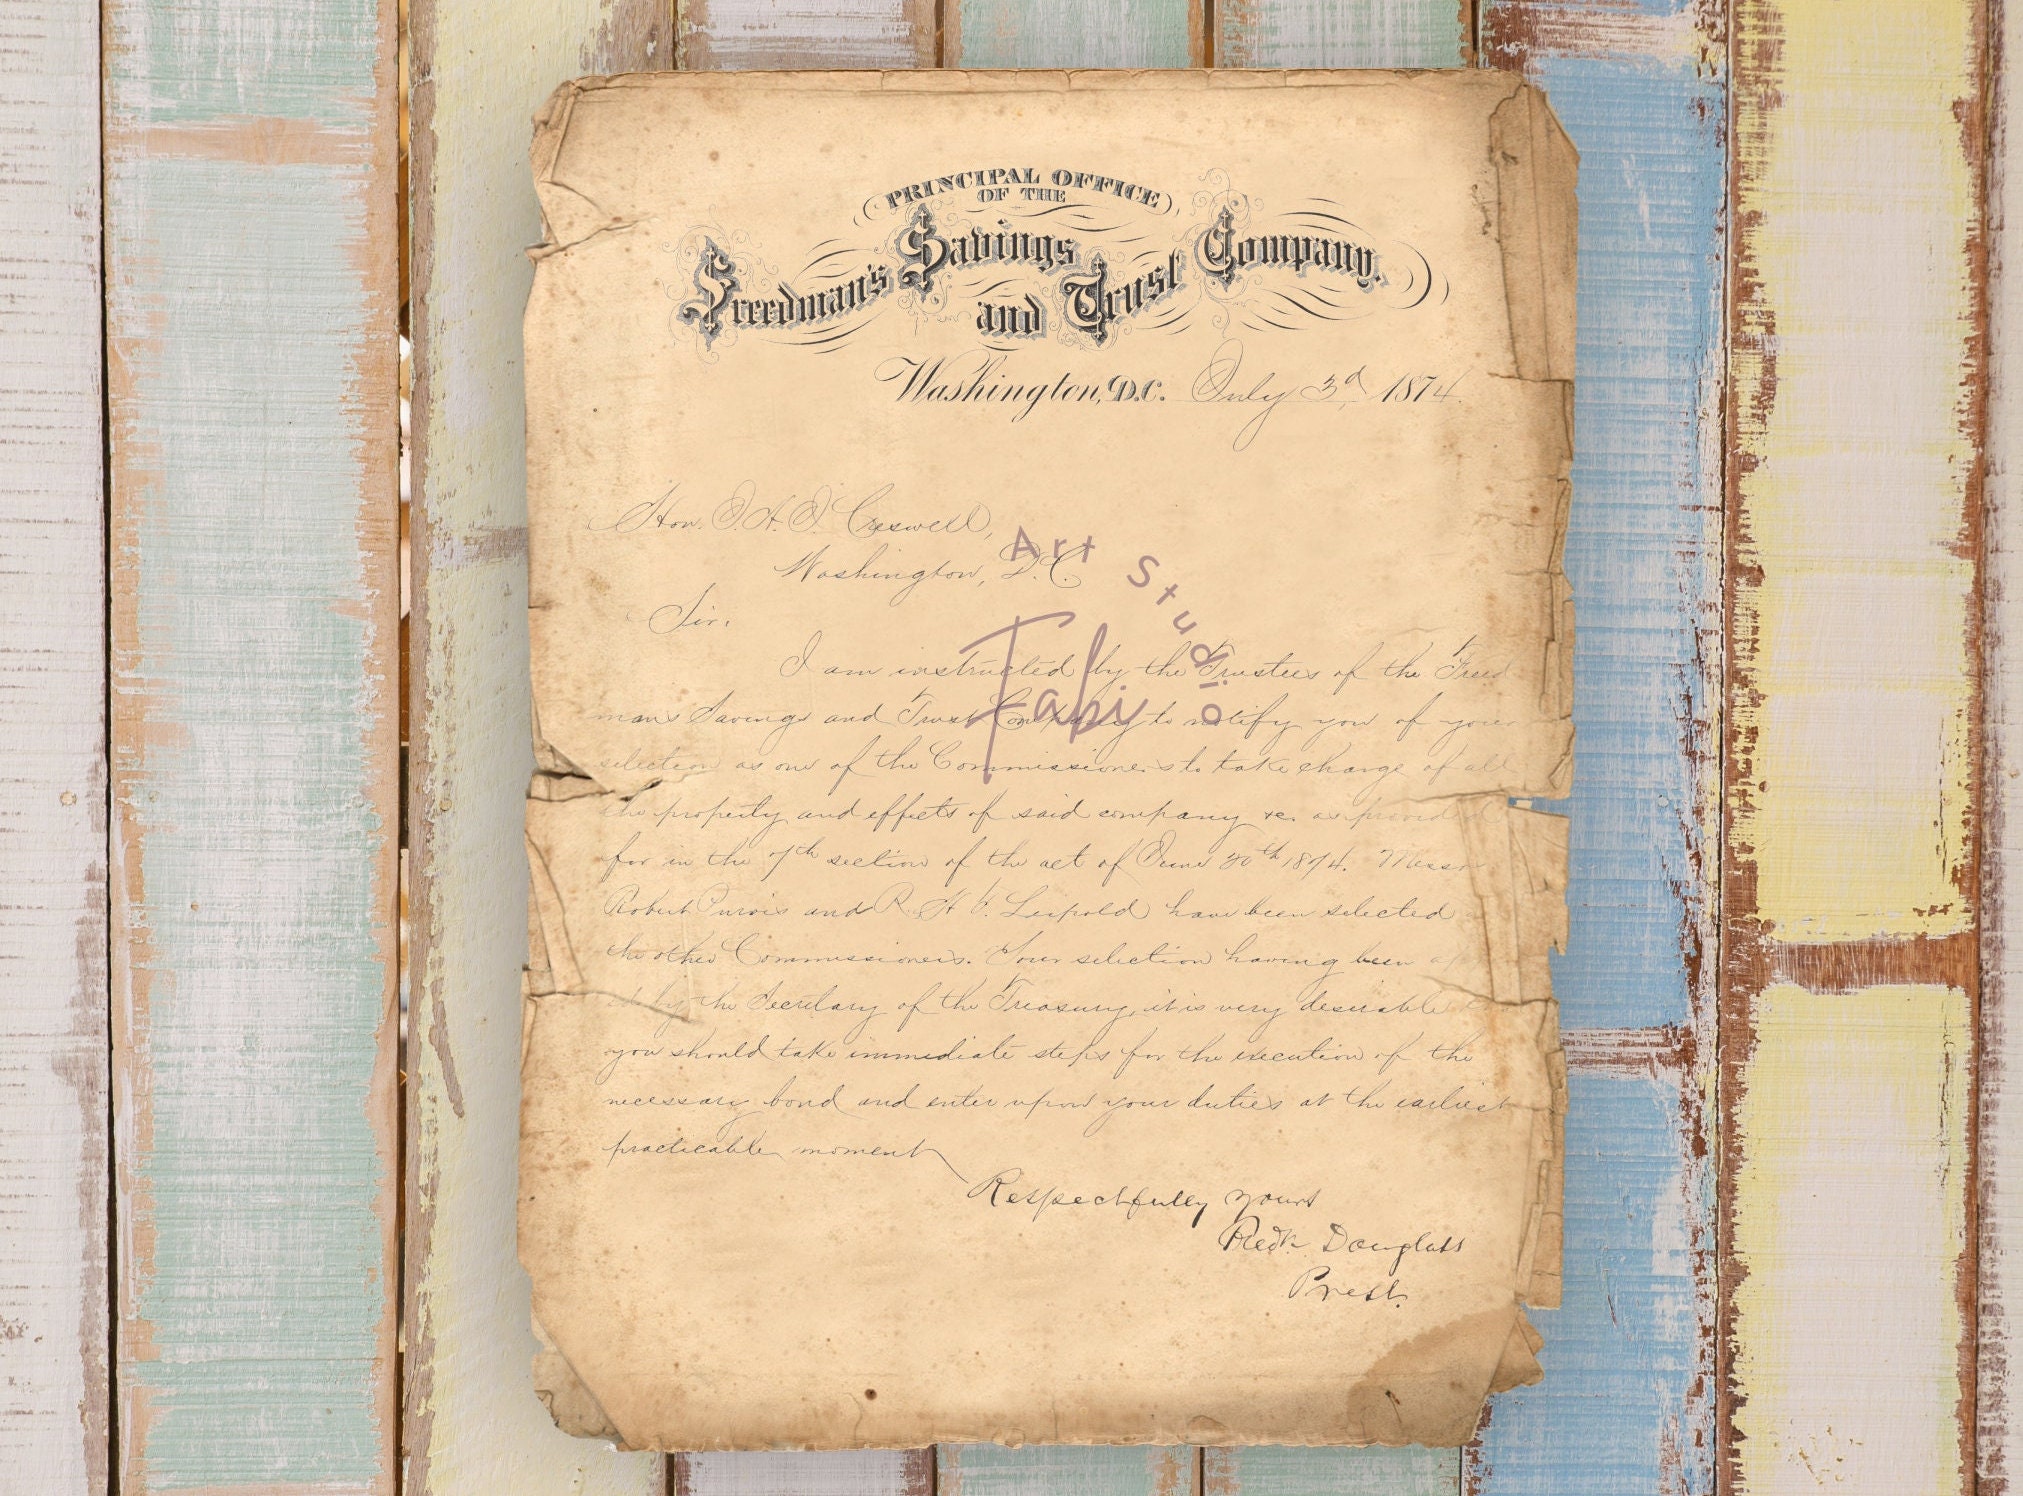 PRINCIPAL OFFICE
OF THE
Freedman's Savings and Trust Company.
Washington, D.C. July 3d, 1874.
Hon. J. A. J. Creswell,
Washington, D.C.
Sir:
I am instructed by the Trustees of the Freed
mans Savings and Trust Company to notify you of your
selection as one of the Commissioners to take charge of all
the property and effects of said company &c. as provided
for in the 7th section of the act of June 20th 1874. Messrs
Robert Purvis and R. H. T. Leipold have been selected
the other Commissioners. Your selection having been
by the Secretary of the Treasury, it is very desirable
you should take immediate steps for the execution of the
necessary bond and enter upon your duties at the earliest
practicable moment
Respectfully yours
Fredk Douglass
Prest.
Art Studio
Fabi